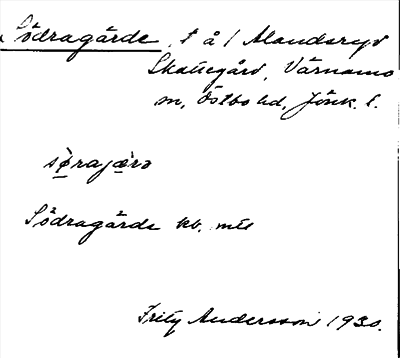 Södragårde, t å / Alandsryd
Skattegård, Värnamo
sn, Östbo hd, Jönk. l.
sø̀rajæ̀rə
Södragårde kb. mtl
Fritz Andersson 1930.